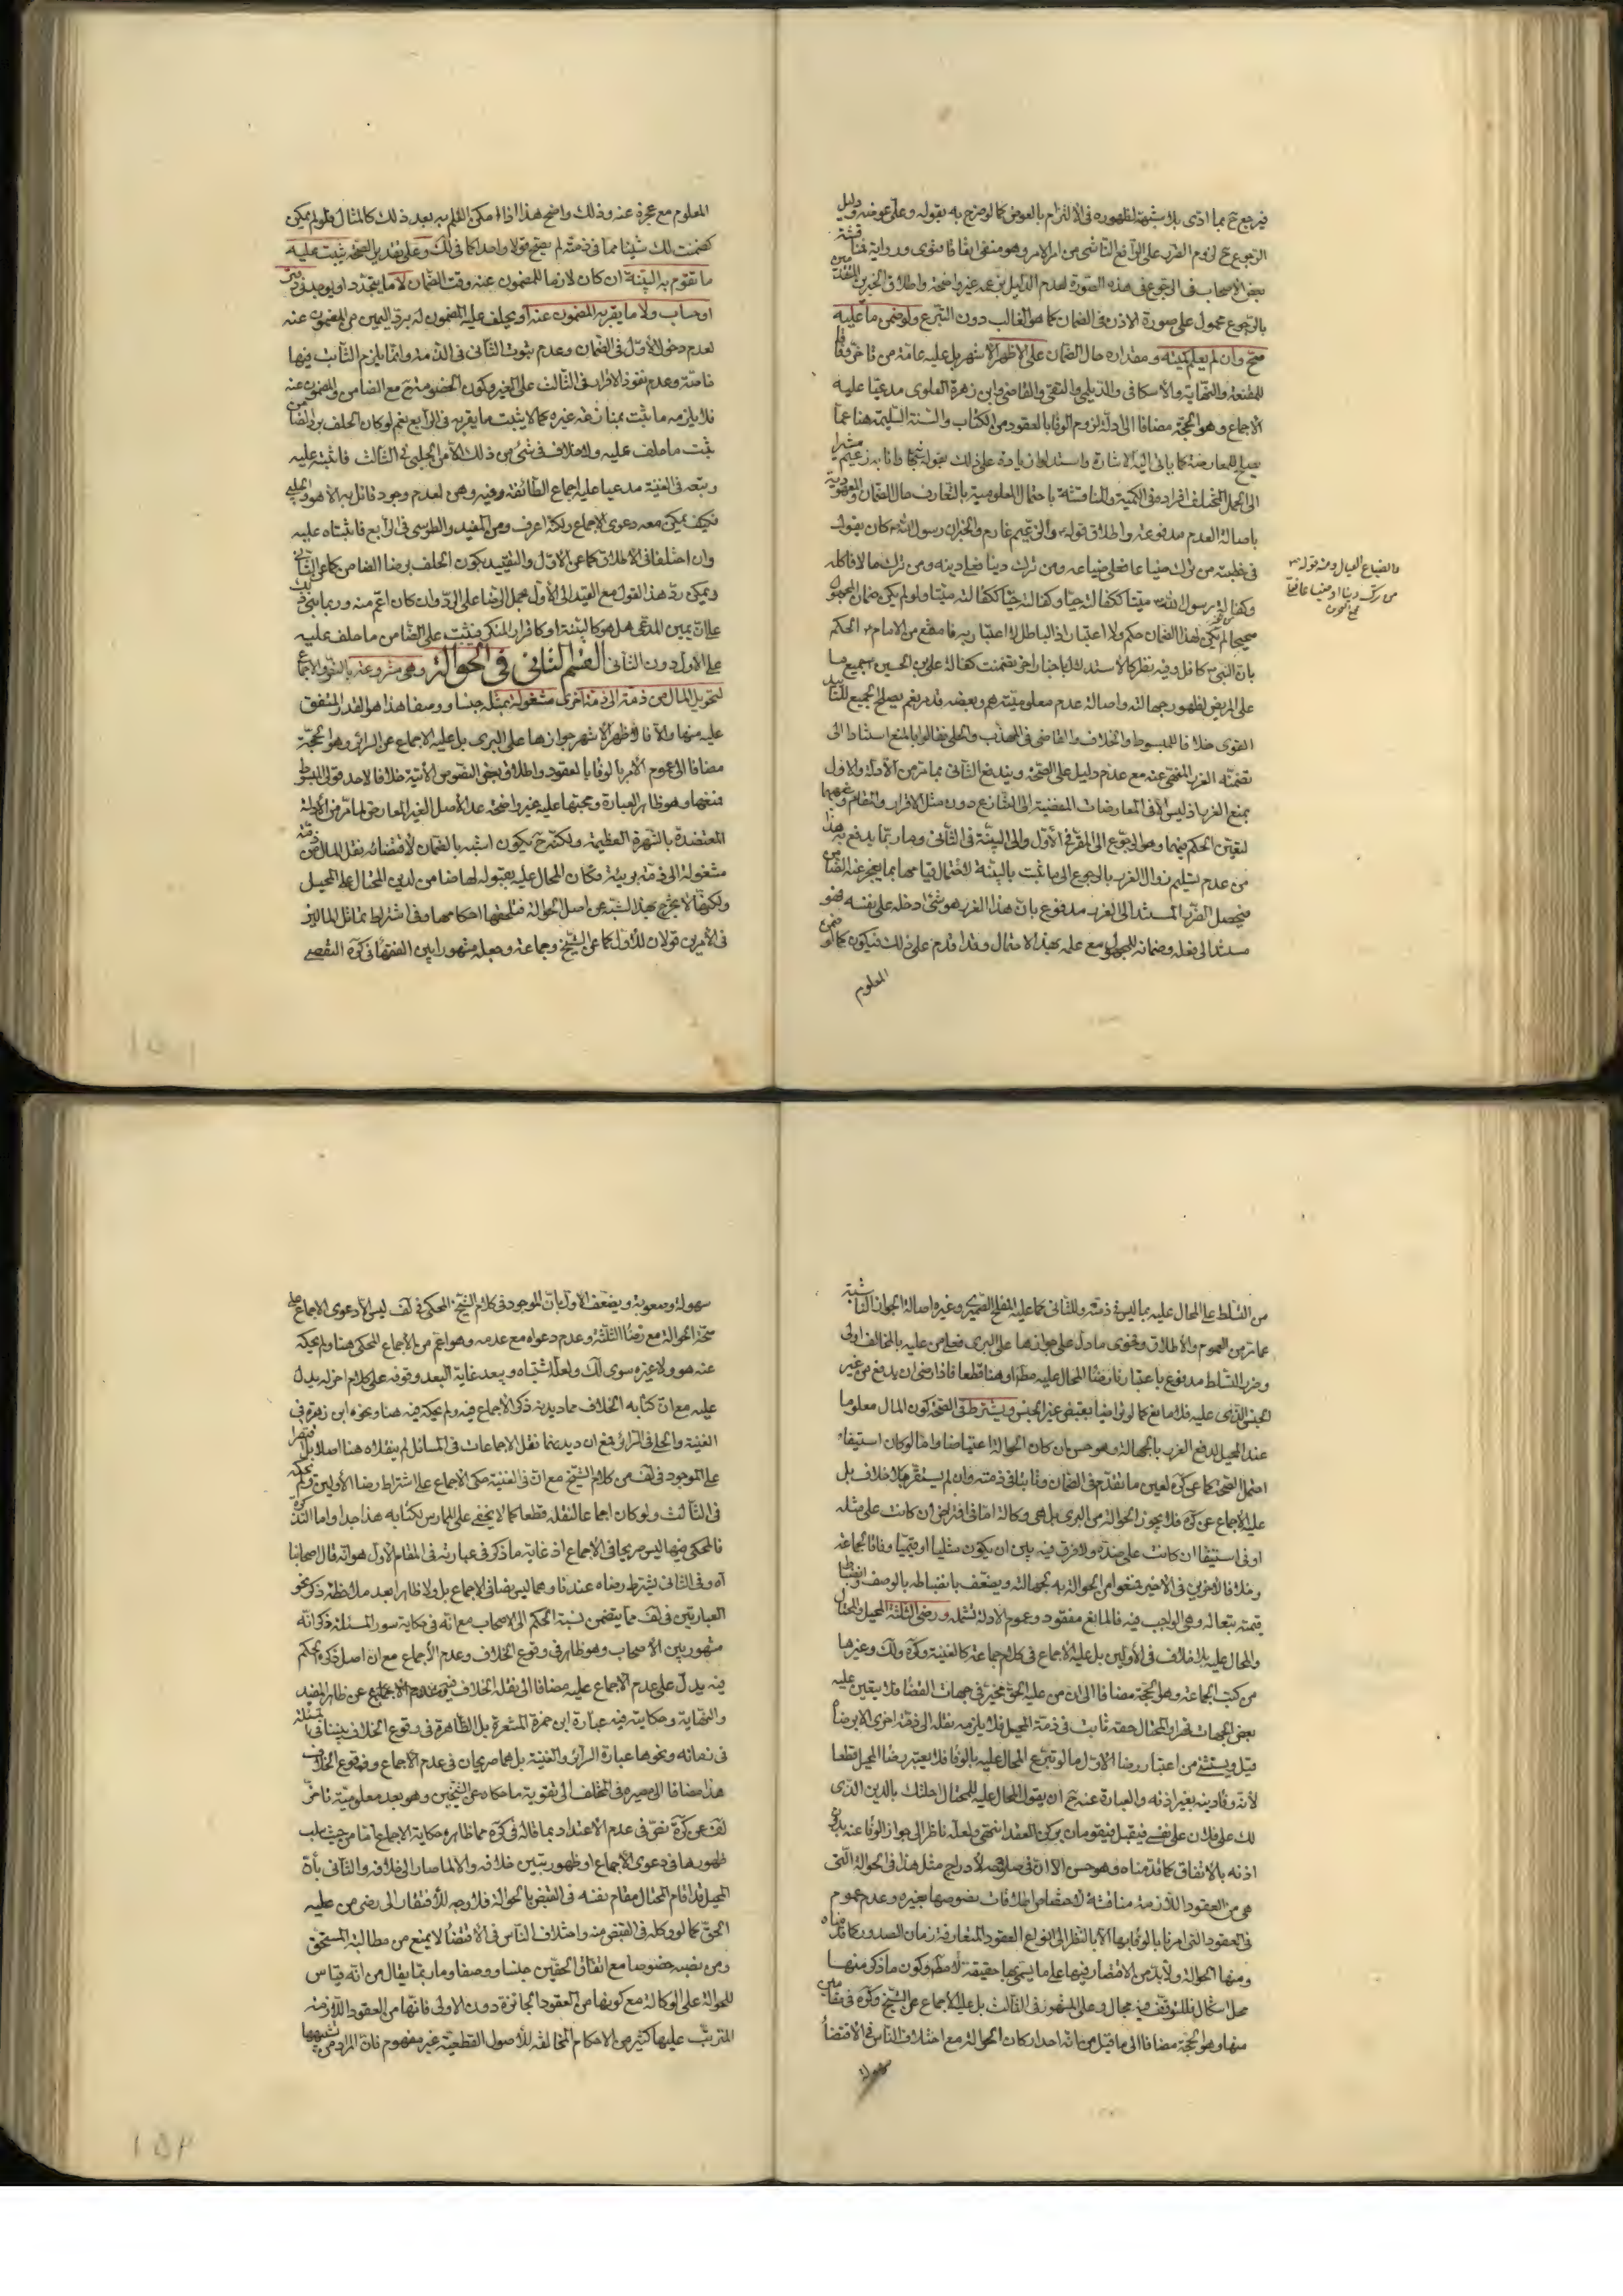 فيرجع ح بما ادى بلا شبهة لظهوره في الالتزام بالعوض كما لو صرح به بقوله وعلى عوضه ودليل
الرجوع ح لزوم الضرر على الدافع الناشي من امر الامر وهو منفي اتفاقا فتوى ورواية فمناقشة
بعض الاصحاب في الرجوع في هذه الصورة لعدم الدليل بزعمه غير واضحة واطلاق الخبرين المتقدمين
بالرجوع محمول على صورة الاذن في الضمان كما هو الغالب دون التبرع ولو ضمن ما عليه
صح وان لم يعلم كميته ومقداره حال الضمان على الاظهر الاشهر بل عليه عامة من تاخر وفاقا
للمقنعة والنهاية والاسكافي والديلمي والتقي والقاضي وابن زهرة العلوي مدعيا عليه
الاجماع وهو الحجة مضافا الى ادلة لزوم الوفا بالعقود من الكتاب والسنة السليمة هنا عما
يصلح للمعارضة كما ياتي اليه الاشارة واستدلوا زيادة على ذلك بقوله سبحانه وانا به زعيم مشيرا
الى الحمل المختلف افراده في الكمية والمناقشة باحتمال المعلومية بالتعارف حال الضمان والمعهودية
باصالة العدم مدفوعة واطلاق قوله والزعيم غارم والخبران رسول الله كان يقول
في خطبته من ترك ضياعا فعلي ضياعه ومن ترك دينا فعلي دينه ومن ترك مالا فاكله
وكفالة رسول الله ميتا ككفالته حيا وكفالته حيا ككفالته ميتا ولو لم يكن ضمان المجهول
صحيحا لم يكن لهذا الضمان حكم ولا اعتبار اذ الباطل لا اعتبار به فامتنع من الامام الحكم
بان النبي كافل وفيه نظر كالاستدلال باخبار اخر تضمنت كفالة علي بن الحسين جميع ما
على المريض لظهور جهالته واصالة عدم معلوميته وبعضه قدم نعم يصلح الجميع للتاييد
القوي خلافا للمبسوط والخلاف والقاضي في المهذب والحلي فقالوا بالمنع استنادا الى
تضمنه الغرر المنفي عنه مع عدم دليل على الصحة ويندفع الثاني بما مر من الادلة والاول
بمنع الغرر اذ ليس الا في المعارضات المفضية الى التنازع دون مثل الاقرار والضمان وغيرهما
لتعين الحكم فيهما وهو الرجوع الى المقر في الاول والى البينة في الثاني وما ربما يدفع به هذا
من عدم تسليم زوال الغرر بالرجوع الى ما ثبت بالبينة لاحتمال قيامها بما يعجز عنه الضامن
فيحصل الضرر المستند الى الغرر مدفوع بان هذا الغرر هو شئ ادخله على نفسه فهو
مستند الى فعله وضمانه للمجهول مع علمه بهذا الاحتمال وقد اقدم على ذلك فيكون كما لو ضمن
المعلوم
والضياع العيال ومنه قوله
من ترك دينا او ضياعا فعلي
مجمع البحرين
المعلوم مع عجزه عنه وذلك واضح هذا اذا امكن العلم به بعد ذلك كالمثال فلو لم يمكن
كضمنت لك شيئا مما في ذمته لم يصح قولا واحدا كما في لك وعلى تقدير الصحة يثبت عليه
ما تقوم به البينة ان كان لازما للمضمون عنه وقت الضمان لا ما يتجدد او يوجد في دفتر
او حساب ولا ما يقر به المضمون عنه او يحلف عليه المضمون له برد اليمين من المضمون عنه
لعدم دخول الاول في الضمان وعدم ثبوت الثاني في الذمة وانما يلزم الثابت فيها
خاصة وعدم نفوذ الاقرار في الثالث على الغير وكون الخصومة ح مع الضامن والمضمون عنه
فلا يلزمه ما يثبت بمنازعة غيره كما لا يثبت ما يقر به في الرابع نعم لو كان الحلف برد الضامن
ثبت ما حلف عليه ولا خلاف في شئ من ذلك الا من الحلبي في الثالث فاثبته عليه
وتبعه في الغنية مدعيا عليه اجماع الطائفة وفيه وهن لعدم وجود قائل به الا هو والحلبي
فكيف يمكن معه دعوى الاجماع ولكنه اعرف ومن المفيد والطوسي في الرابع فاثبتاه عليه
وان اختلفا في الاطلاق كما عن الاول والتقييد بكون الحلف برضا الضامن كما عن الثاني
ويمكن رد هذا القول مع القيد الى الاول بحمل الرضا على الرد وان كان اعم منه وربما بني ذلك
على ان يمين المدعي هل هو كالبينة او كاقرار المنكر فيثبت على الضامن ما حلف عليه
على الاول دون الثاني القسم الثاني في الحوالة وهي مشروعة بالنص والاجماع
لتحويل المال من ذمة الى ذمة اخرى مشغولة بمثله جنسا ووصفا هذا هو القدر المتفق
عليه منها والا فالاظهر الاشهر جوازها على البري بل عليه الاجماع عن السرائر وهو الحجة
مضافا الى عموم الامر بالوفا بالعقود واطلاق بعض النصوص الاتية خلافا لاحد قولي المبسوط
فمنعها وهو ظاهر العبارة وحجتها عليه غير واضحة عدا الاصل الغير المعارض لما مر من الادلة
المعتضدة بالشهرة العظيمة ولكنه ح يكون اشبه بالضمان لاقتضائه نقل المال من ذمة
مشغولة الى ذمة بريئة فكان المحال عليه بقبوله لها ضامن لدين المحتال على المحيل
ولكنها لا تخرج بهذا الشبه عن اصل الحوالة فتلحقها احكامها وفي اشتراط تماثل المالين
في الامرين قولان للاول كما عن الشيخ وجماعة وجعله مشهورا بين الفقها في كرة التفصي
من التسلط على المحال عليه بما ليس في ذمته وللثاني كما عليه المفلح الصيمري وغيره اصالة الجواز الناشية
عما مر من العموم والاطلاق وفحوى ما دل على جوازها على البري فعلى من عليه بالمخالف اولى
وضرر التسلط مدفوع باعتبارنا رضا المحال عليه مطم او هنا قطعا فاذا رضي ان يدفع من غير
الجنس الذي عليه فلا مانع كما لو تراضيا بقبض غير الجنس ويشترط في الصحة كون المال معلوما
عند المحيل لدفع الغرر بالجهالة وهو حسن ان كان الحوالة اعتياضا واما لو كان استيفاء
احتمل الصحة كما عن كرة لعين ما تقدم في الضمان وثابتا في ذمته وان لم يستقر بلا خلاف بل
عليه الاجماع عن كرة فلا يجوز الحوالة من البري بل هي وكالة اما في اقتراض ان كانت على مثله
او في استيفا ان كانت على ضده ولا فرق فيه بين ان يكون مثليا او قيميا وفاقا لجماعة
وخلافا لاخرين في الاخير فمنعوا من الحوالة به لجهالته ويضعف بانضباطه بالوصف انضباط
قيمته بتعاله وهي الواجب فيه فالمانع مفقود وعموم الادلة تشمله ورضى الثلثة المحيل والمحتال
والمحال عليه بلا خلاف في الاولين بل عليه الاجماع في كلام جماعة كالغنية وكرة ولك وغيرها
من كتب الجماعة وهو الحجة مضافا الى ان من عليه الحق مخير في جهات القضا فلا يتعين عليه
بعض الجهات قهرا والمحتال حقه ثابت في ذمة المحيل فلا يلزمه نقله الى ذمة اخرى الا برضاه
قيل ويستثنى من اعتبار رضا الاول ما لو تبرع المحال عليه بالوفا فلا يعتبر رضا المحيل قطعا
لانه وفا دينه بغير اذنه والعبارة عنه ح ان يقول المحال عليه للمحتال احلتك بالدين الذي
لك على فلان على نفسي فيقبل فيقومان بركني العقد انتهى ولعله ناظر الى جواز الوفا عنه بدون
اذنه بالاتفاق كما قدمناه وهو حسن الا ان في صلاحيته لادراج مثل هذا في الحوالة التي
هي من العقود اللازمة مناقشة لاختصاص اطلاقات نصوصها بغيره وعدم عموم
في العقود التي امرنا بالوفا بها الا بالنظر الى انواع العقود المتعارفة زمان الصدور كما قدمناه
ومنها الحوالة ولا بد من الاقتصار فيها على ما يسمى بها حقيقة لا مطم وكون ما ذكر منها
محل اشكال فللتوقف فيه مجال وعلى المشهور في الثالث بل عليه الاجماع عن الشيخ وكرة في مقامين
منها وهو الحجة مضافا الى ما قيل من انه احد اركان الحوالة مع اختلاف الناس في الاقتضا
سهولة
سهولة وصعوبة ويضعف الاول بان الموجود في كلام الشيخ المحكي في لف ليس الا دعوى الاجماع على
صحة الحوالة مع رضا الثلثة وعدم دعواه مع عدمه وهو اعم من الاجماع المحكي هنا ولم يحكه
عنه هو ولا غيره سوى لك ولعله اشتباه ويبعد غاية البعد وقوفه على كلام اخر له يدل
عليه مع ان كتابه الخلاف مما ديدنه ذكر الاجماع فيه ولم يحكه فيه هنا ونحوه ابن زهرة في
الغنية والحلي في السرائر فمع ان ديدنهما نقل الاجماعات في المسائل لم ينقلاه هنا اصلا بل اقتصرا
على الموجود في لف من كلام الشيخ مع ان في الغنية حكى الاجماع على اشتراط رضا الاولين ولم يحكه
في الثالث ولو كان اجماعا لنقله قطعا كما لا يخفى على الممارس لكتابه هذا جدا واما التذكرة
فالمحكي فيها ليس صريحا في الاجماع اذ غاية ما ذكر في عبارته في المقام الاول هو انه قال اصحابنا
اه وفي الثاني يشترط رضاه عندنا وهما ليس نصا في الاجماع بل ولا ظاهرا بعد ملاحظة ذكر نحو
العبارتين في لف مما يتضمن نسبة الحكم الى الاصحاب مع انه في حكاية سور المسئلة ذكر انه
مشهور بين الاصحاب وهو ظاهر في وقوع الخلاف وعدم الاجماع مع ان اصل ذكره الحكم
فيه يدل على عدم الاجماع عليه مضافا الى نقله الخلاف عن ظاهر المفيد
والنهاية وحكايته فيه عبارة ابن حمزة المشعرة بل الظاهرة في وقوع الخلاف بيننا في المسئلة
في زمانه ونحوها عبارة السرائر والغنية بل هما صريحان في عدم الاجماع ووقوع الخلاف
هذا مضافا الى مصيره في المختلف الى تقوية ما حكاه عن الشيخين وهو بعد معلومية تاخر
لف عن كرة نص في عدم الاعتداد بما قاله في كرة مما ظاهره حكاية الاجماع اما من حيث سلب
ظهورها في دعوى الاجماع او ظهور تبين خلافه والا لما صار الى خلافه والثاني بان
المحيل قد اقام المحتال مقام نفسه في القبض بالحوالة فلا وجه للافتقار الى رضى من عليه
الحق كما لو وكله في القبض منه واختلاف الناس في الاقتضا لا يمنع من مطالبة المستحق
ومن نصبه خصوصا مع اتفاق الحقين جنسا ووصفا وما ربما يقال من انه قياس
للحوالة على الوكالة مع كونها من العقود الجائزة دون الاولى فانها من العقود اللازمة
المترتب عليها كثير من الاحكام المخالفة للاصول القطعية غير مفهوم فان المراد من تشبيهها